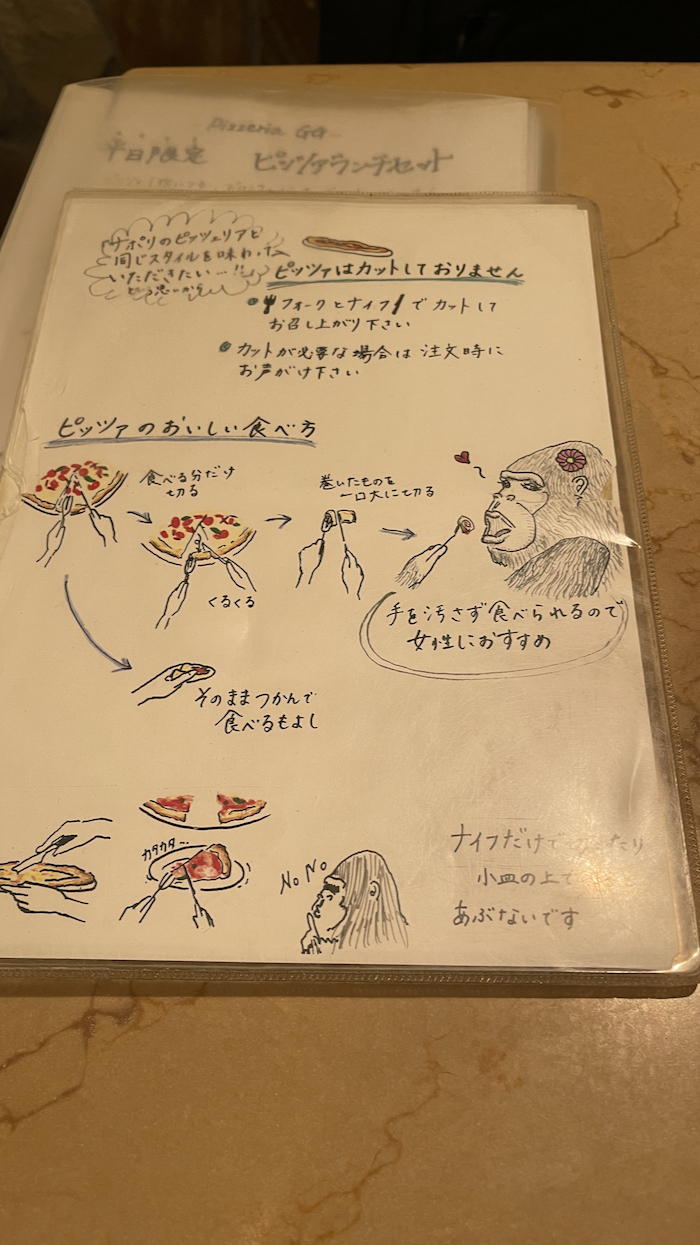 Pizzeria GG
平日限定 ピッツァランチセット
ナポリのピッツェリアと
同じスタイルを味わって
いただきたい…!!
という思いから
ピッツァはカットしておりません
フォークとナイフでカットして
お召し上がり下さい
カットが必要な場合は注文時に
お声がけ下さい
ピッツァのおいしい食べ方
食べる分だけ
切る
くるくる
巻いたものを
一口大に切る
手を汚さず食べられるので
女性におすすめ
そのままつかんで
食べるもよし
カタカタ…
No No
ナイフだけで たり
小皿の上で
あぶないです